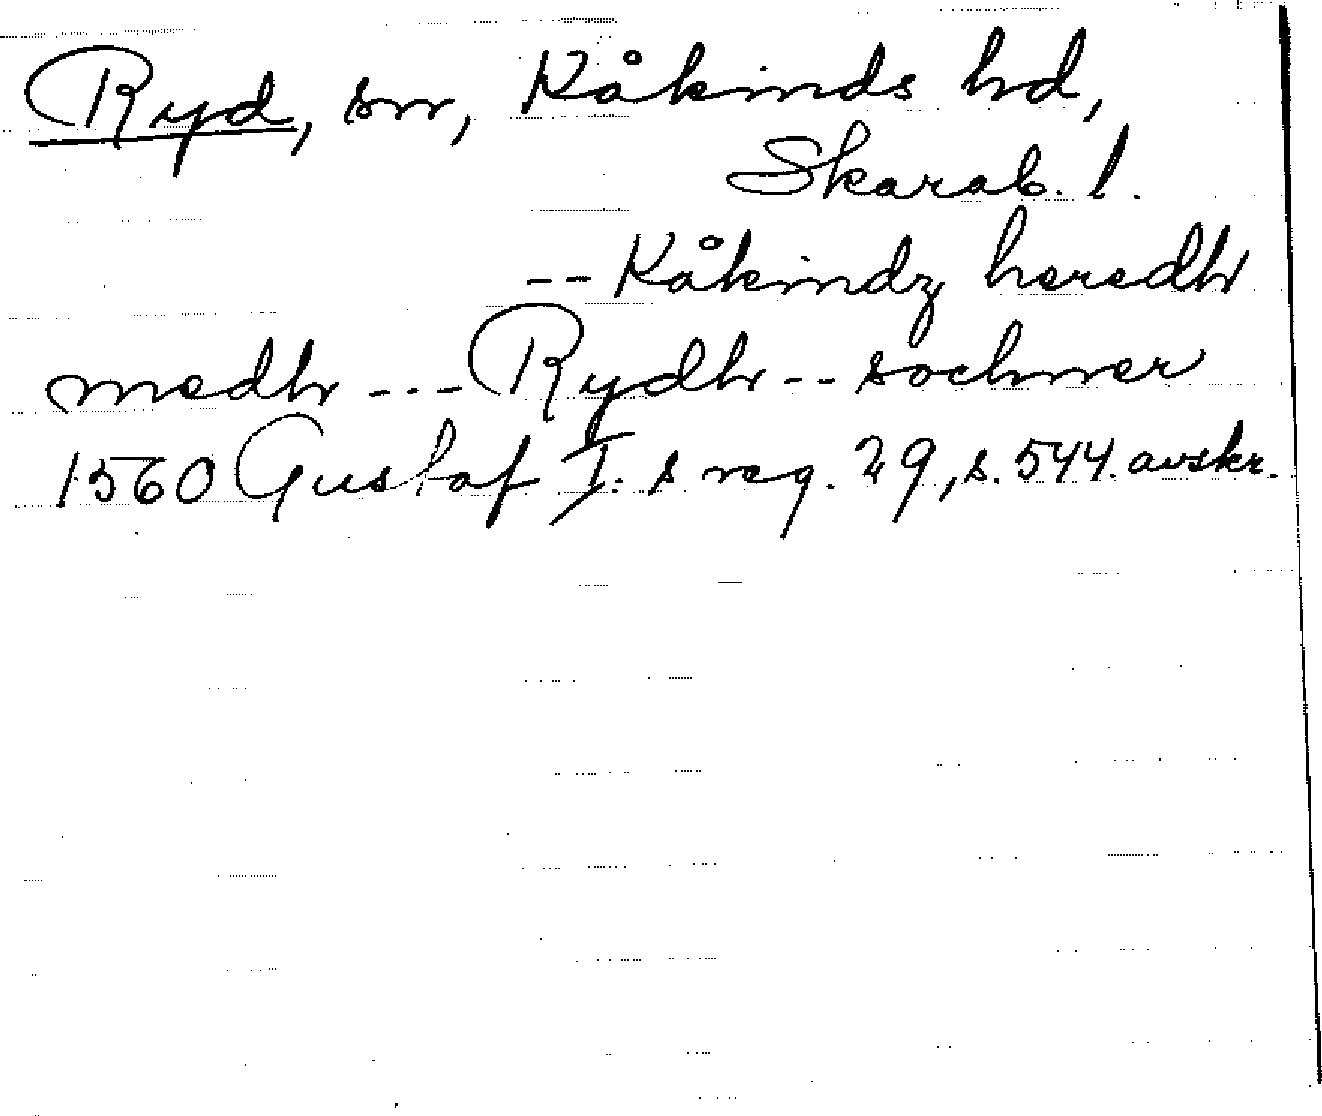 Ryd, sn, Kåkinds hd,
Skarab. l.
-- Kåkindz heredh
medh --- Rydh -- sochner
1560 Gustaf I: s reg. 29, s. 544. avskr.